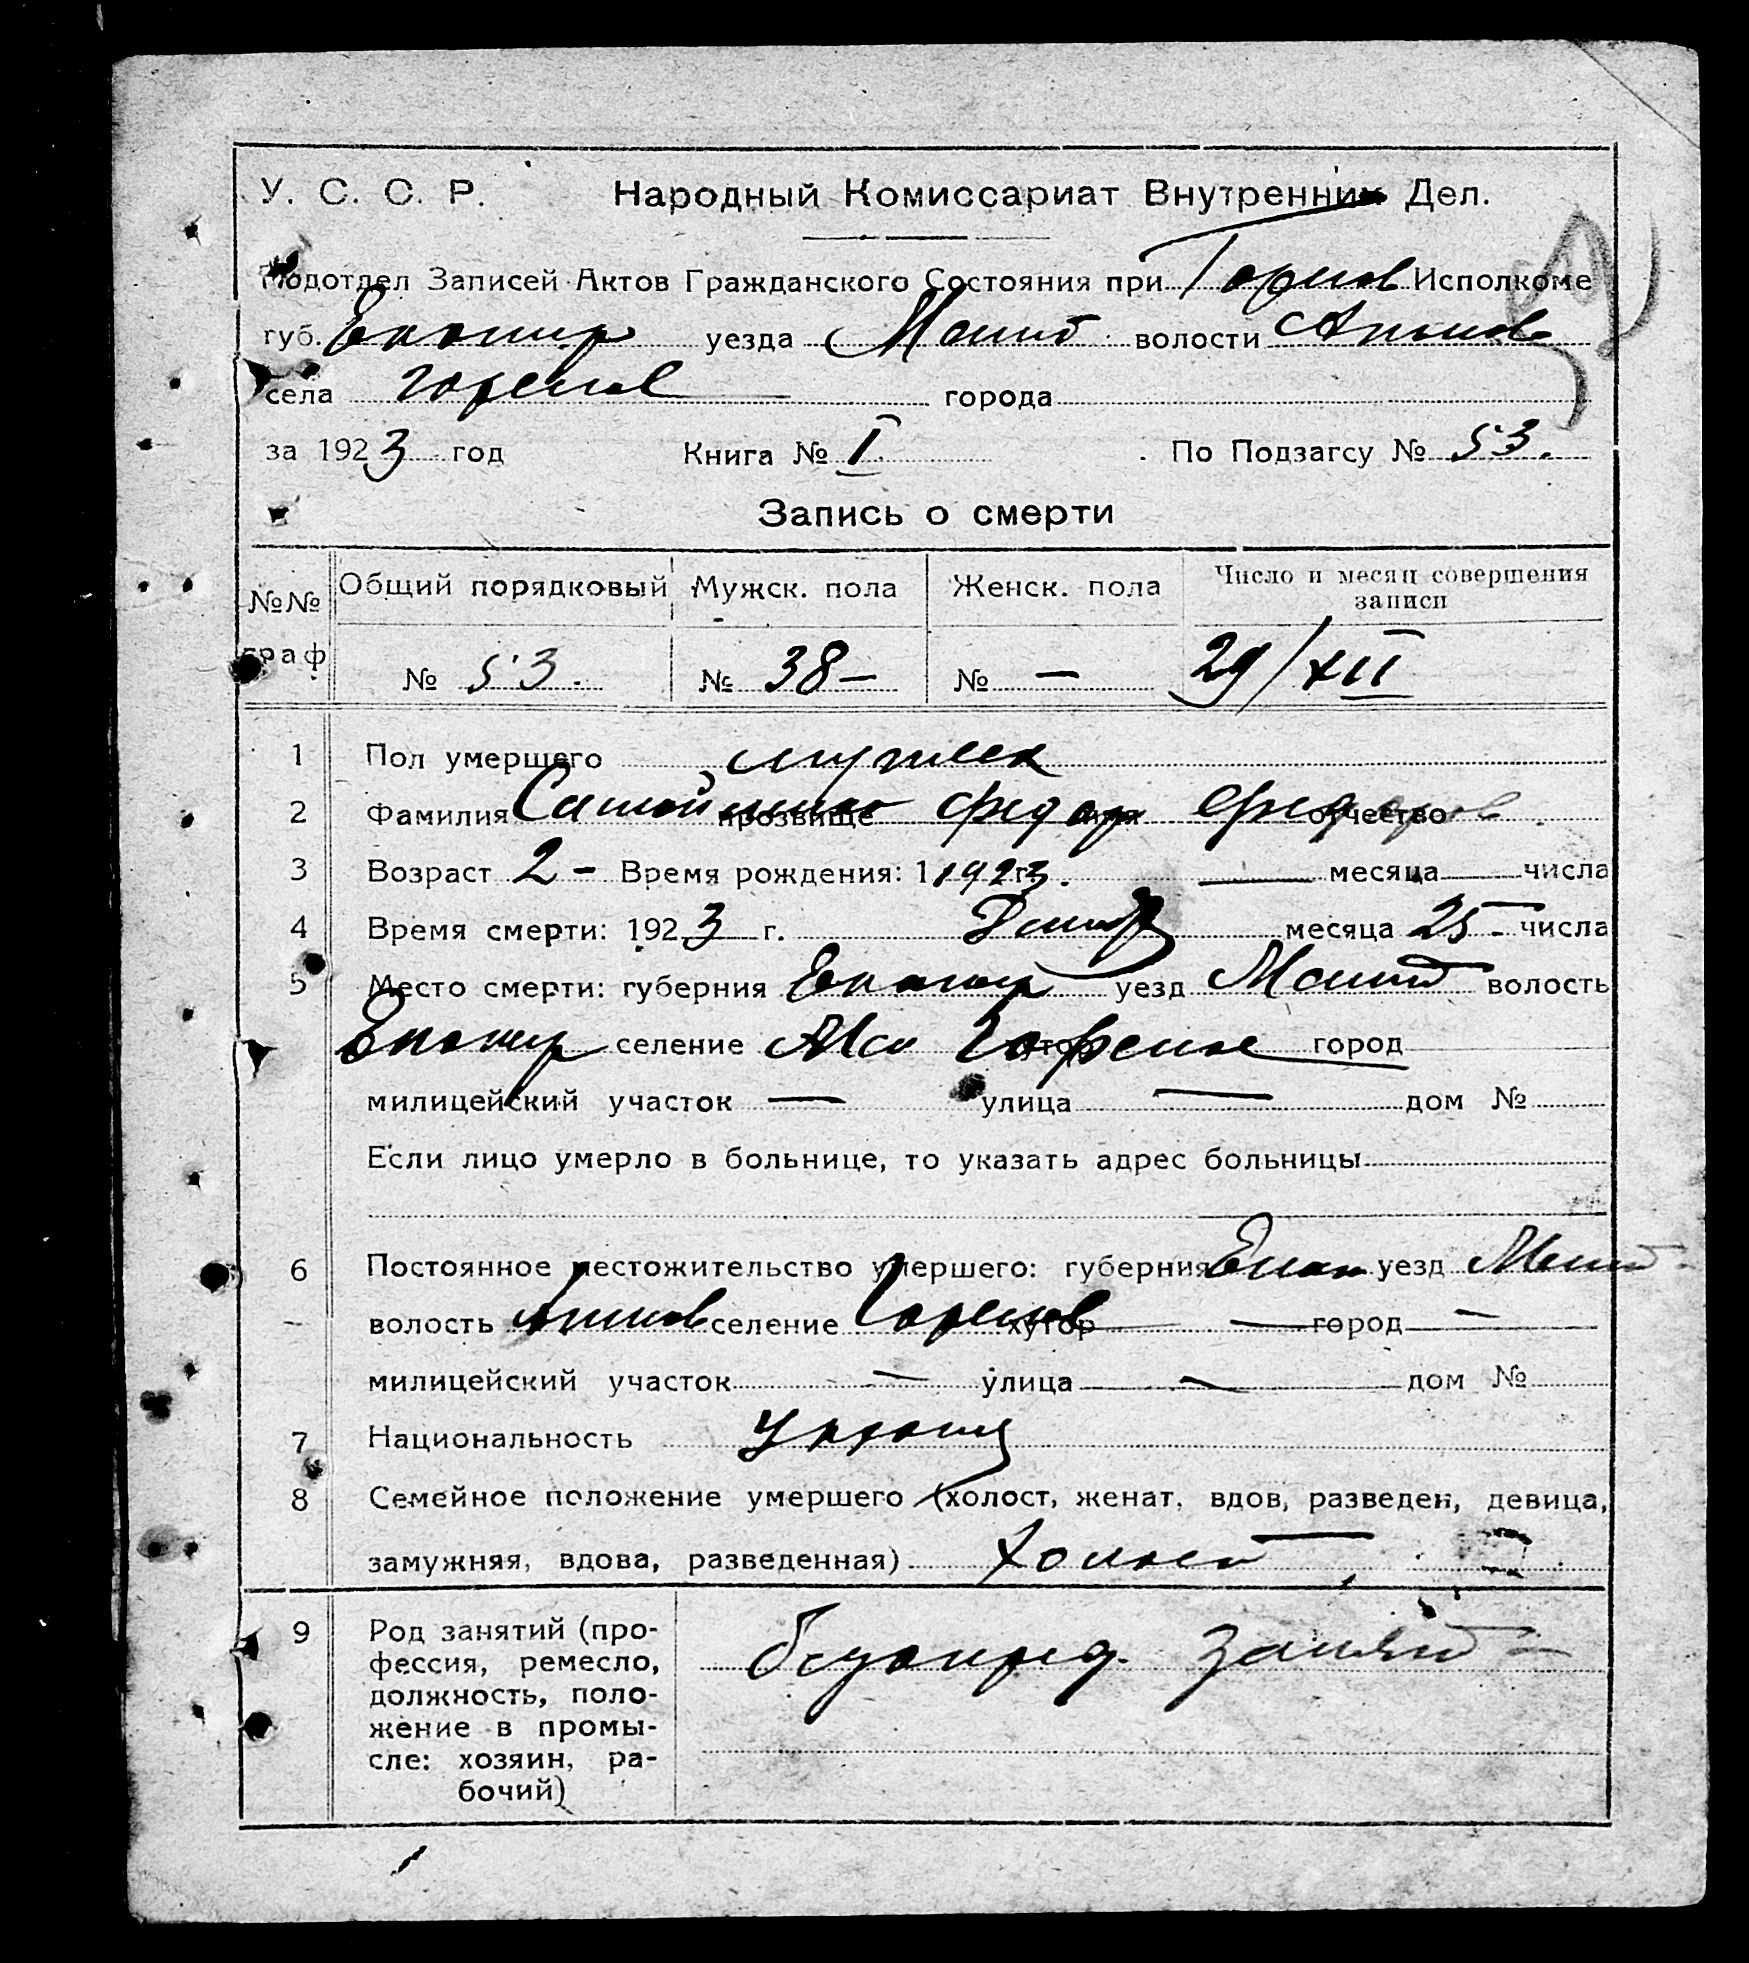 У. С. С. Р. Народный Комиссариат Внутренних Дел.
Подотдел Записей Актов Гражданского Состояния при Горенов Исполкоме
губ. Екатир уезда волости
села города
за 1923 год Книга № I. По Подзагсу № 53.
Запись о смерти
№№ граф Общий порядковый Мужск. пола Женск. пола Число и месяц совершения записи
№ 53. № 38 – № – 29/XII
1 Пол умершего мужеск
2 Фамилия прозвище Федор имя отчество
3 Возраст 2 – Время рождения: 1 1923. г. — месяца числа
4 Время смерти: 1923 г. Декабр месяца 25 – числа
5 Место смерти: губерния Екатир уезд волость
Екатир селение хутор город
милицейский участок — улица — дом №
Если лицо умерло в больнице, то указать адрес больницы
6 Постоянное местожительство умершего: губерния Екат уезд
волость селение хутор — город —
милицейский участок — улица — дом №
7 Национальность Украин
8 Семейное положение умершего (холост, женат, вдов, разведен, девица,
замужняя, вдова, разведенная) Холост
9 Род занятий (про-
фессия, ремесло,
должность, поло-
жение в промы-
сле: хозяин, ра-
бочий)
безопред. занят –